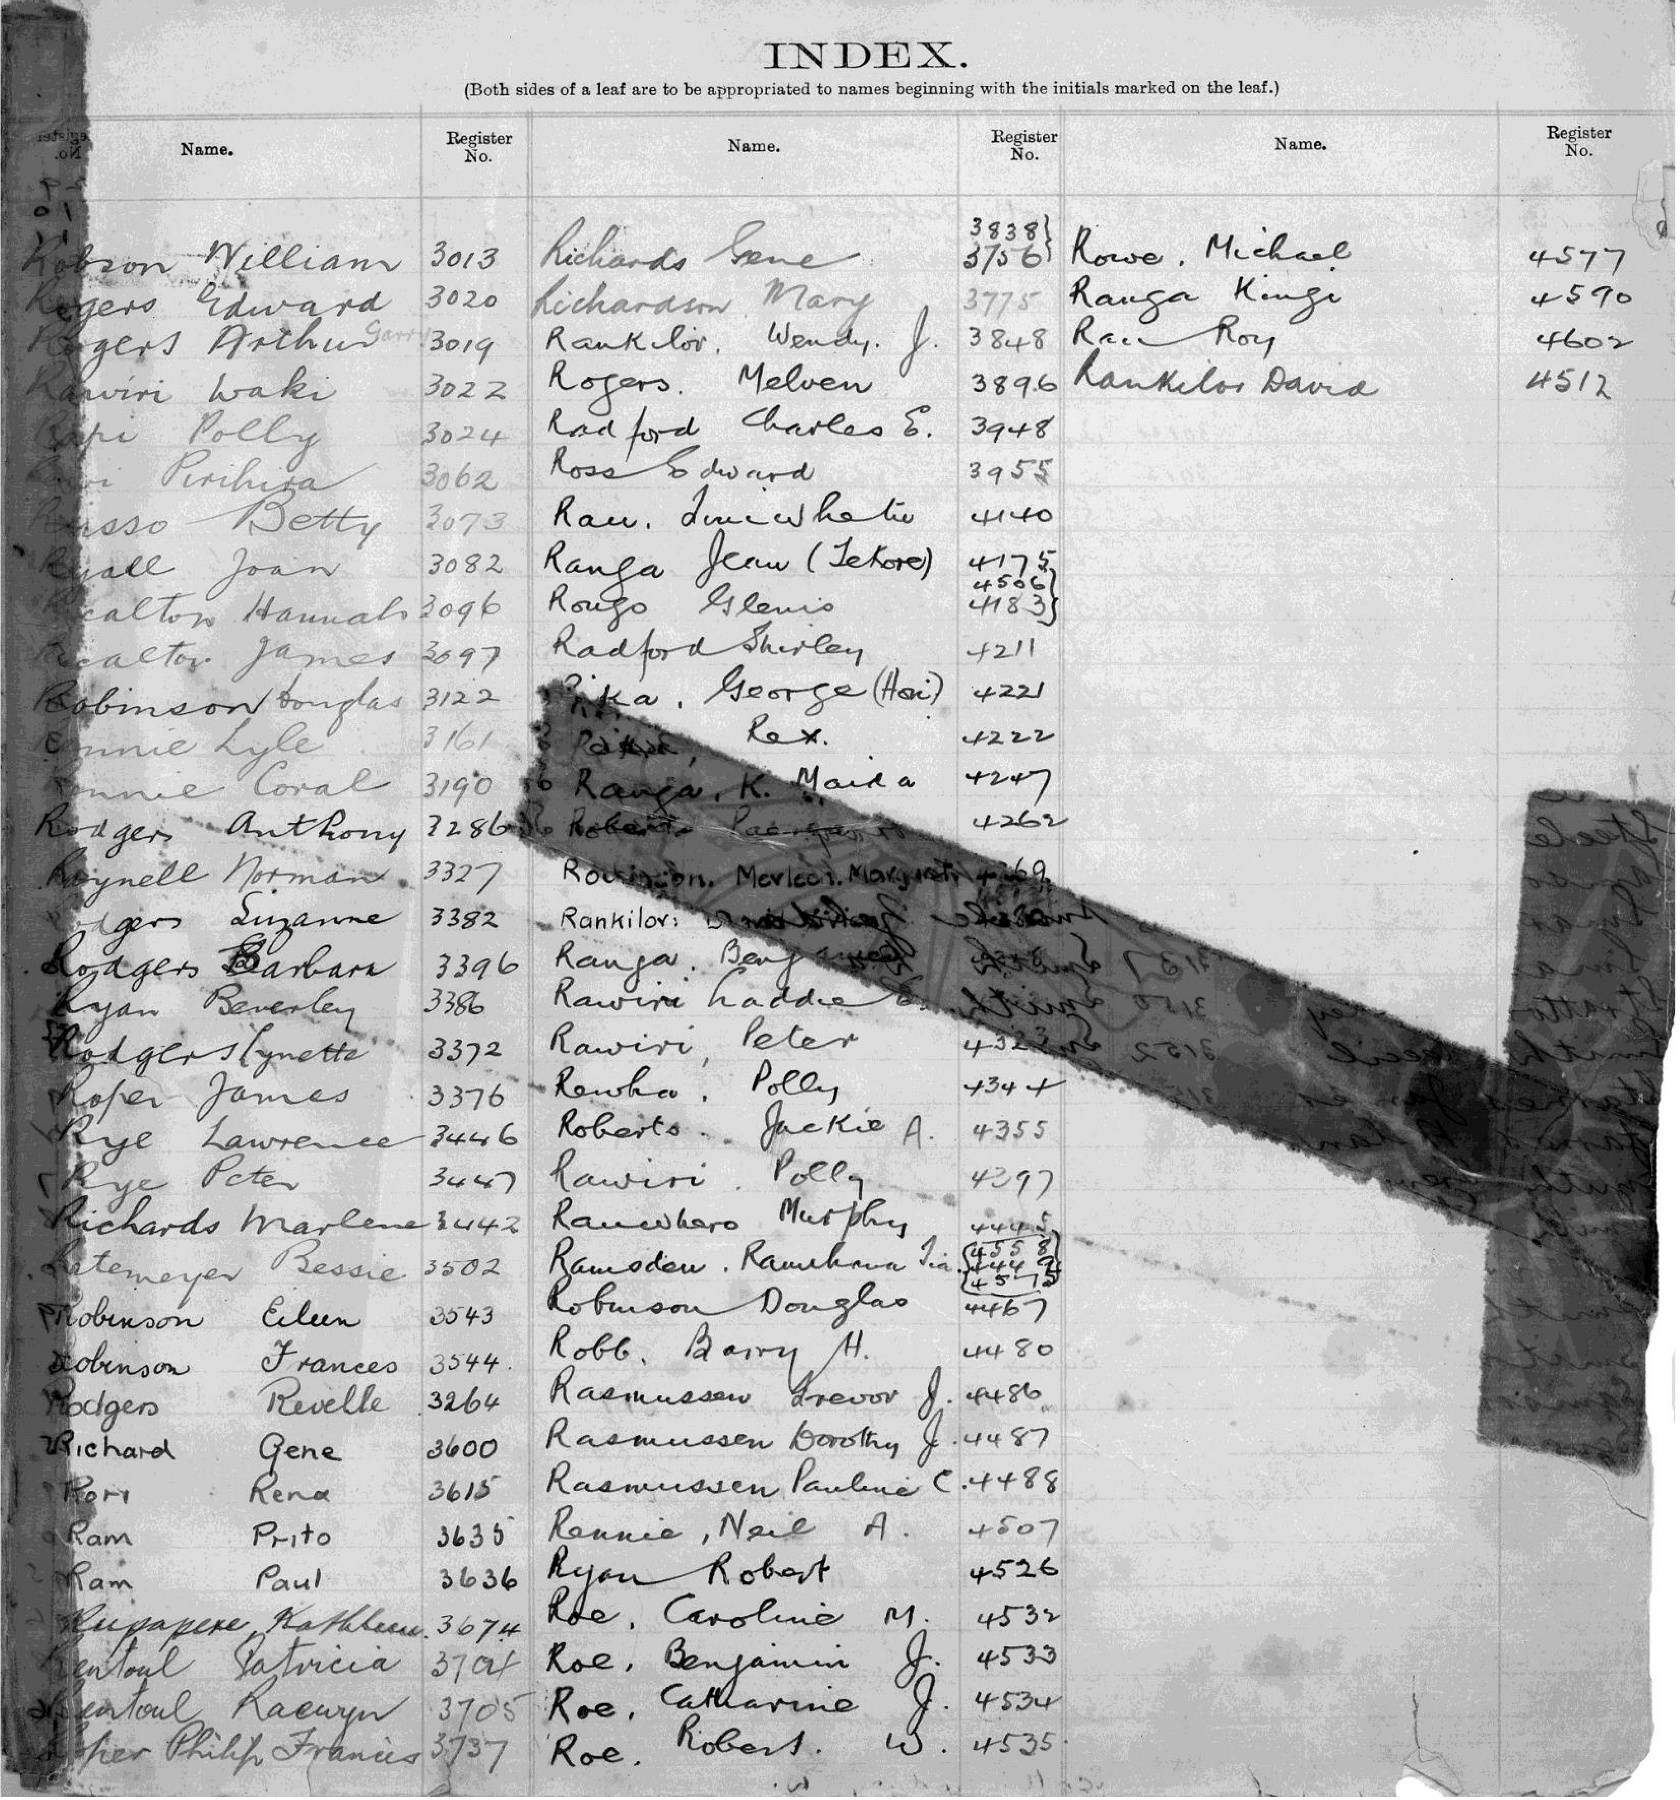 INDEX.
(Both sides of a leaf are to be appropriated to names beginning with the initials marked on the leaf.)
Name. Register No. Name. Register No. Name. Register No.
Robson William 3013
Rogers Edward 3020
Rogers Arthur Garry 3019
Rawiri Waki 3022
Polly 3024
Pirihira 3062
Russo Betty 3073
Ryall Joan 3082
Recalton Hannah 3096
Recalton James 3097
Robinson Douglas 3122
Rennie Lyle 3161
Rennie Coral 3190
Rodgers Anthony 3286
Reynell Norman 3327
Rodgers Suzanne 3382
Rodgers Barbara 3396
Ryan Beverley 3386
Rodgers Lynette 3372
Roper James 3376
Rye Lawrence 3446
Rye Peter 3447
Richards Marlene 3442
Ratemeyer Bessie 3502
Robinson Eileen 3543
Robinson Frances 3544.
Rodgers Revelle 3264
Richard Gene 3600
Rori Rena 3615
Ram Prito 3635
Ram Paul 3636
Rupapere, Kathleen. 3674
Rentoul Patricia 3704
Rentoul Raewyn 3705
Roper Philip Francis 3737
Richards Gene 3838 3756
Richardson Mary 3775
Rankilor, Wendy. J. 3848
Rogers. Melven 3896
Radford Charles E. 3948
Ross Edward 3955
Rau. 4140
Ranga Jean (Tekore) 4175
Rongo Glenis 4506 4183
Radford Shirley 4211
Rika, George (Hori) 4221
Rex. 4222
Ranga, K. Maida 4247
Roberts 4262
Robinson. Merleen. Margaret
Rankilor:
Ranga.
Rawiri Laddie E.
Rawiri, Peter 4323
Rewha, Polly 4344
Roberts. Jackie A. 4355
Rawiri. Polly 4397
Rauwhero Murphy 4445
Ramsden. 4558 4449 4575
Robinson Douglas 4467
Robb. Barry H. 4480
Rasmussen Trevor J. 4486
Rasmussen Dorothy J. 4487
Rasmussen Pauline C. 4488
Rennie, Neil A. 4507
Ryan Robert 4526
Roe, Caroline M. 4532
Roe, Benjamin J. 4533
Roe, Catharine J. 4534
Roe. Robert. W. 4535
Rowe, Michael 4577
Ranga Kingi 4590
Rau Roy 4602
Rankilor David 4512